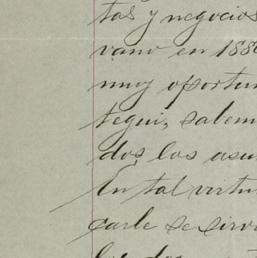 tas y negocios
vano en 188
muy oportun
tegui, sabem
dos los asu
En tal virtu
carle se sirv